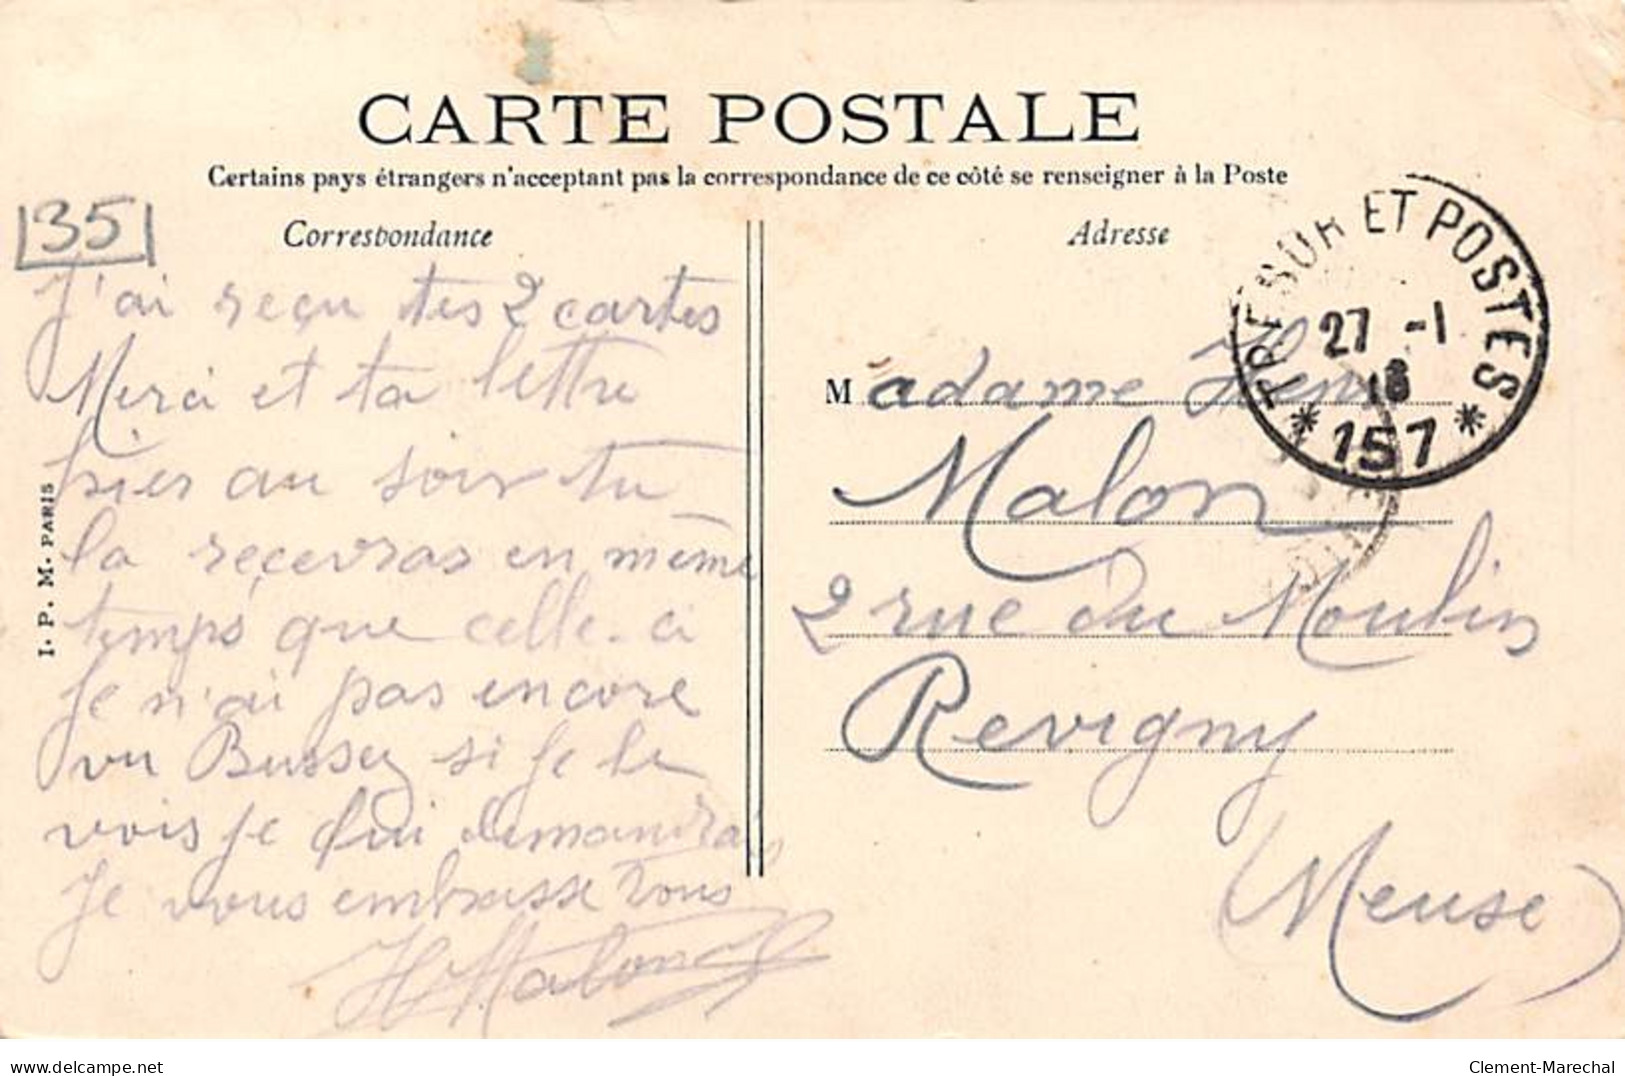 CARTE POSTALE
Certains pays étrangers n'acceptent pas la correspondance de ce côté se renseigner à la Poste
35
Correspondance
J'ai reçu tes 2 cartes
Merci et ta lettre
hier au soir tu
la recevras en même
temps que celle-ci
Je n'ai pas encore
vu Bussey si je le
vois je lui demanderai
Je vous embrasse tous
H Malon
I. P. M. PARIS
Adresse
TRESOR ET POSTES
27 -1
* 157 *
Madame
Malon
2 rue du Moulin
Revigny
(Meuse)
delcampe.net
Clement-Marechal